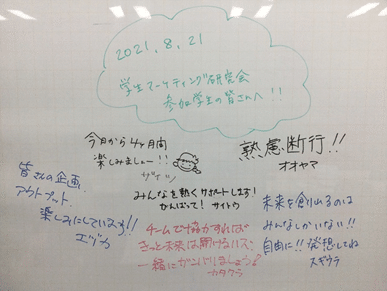 2021.8.21
学生マーケティング研究会
参加学生の皆さんへ!!
今日から4ヶ月間
楽しみましょー!!
熟慮断行!!
オオヤマ
皆さんの企画、
アウトプット、
楽しみにしています!!
エヅカ
みんなを熱くサポートします!
がんばって! サイトウ
チームで協力すれば
きっと未来は開けるハズ、
一緒にガンバりましょう♪
カタクラ
未来を創れるのは
みんなしかいない!!
自由に!! 発想してね
スギウラ